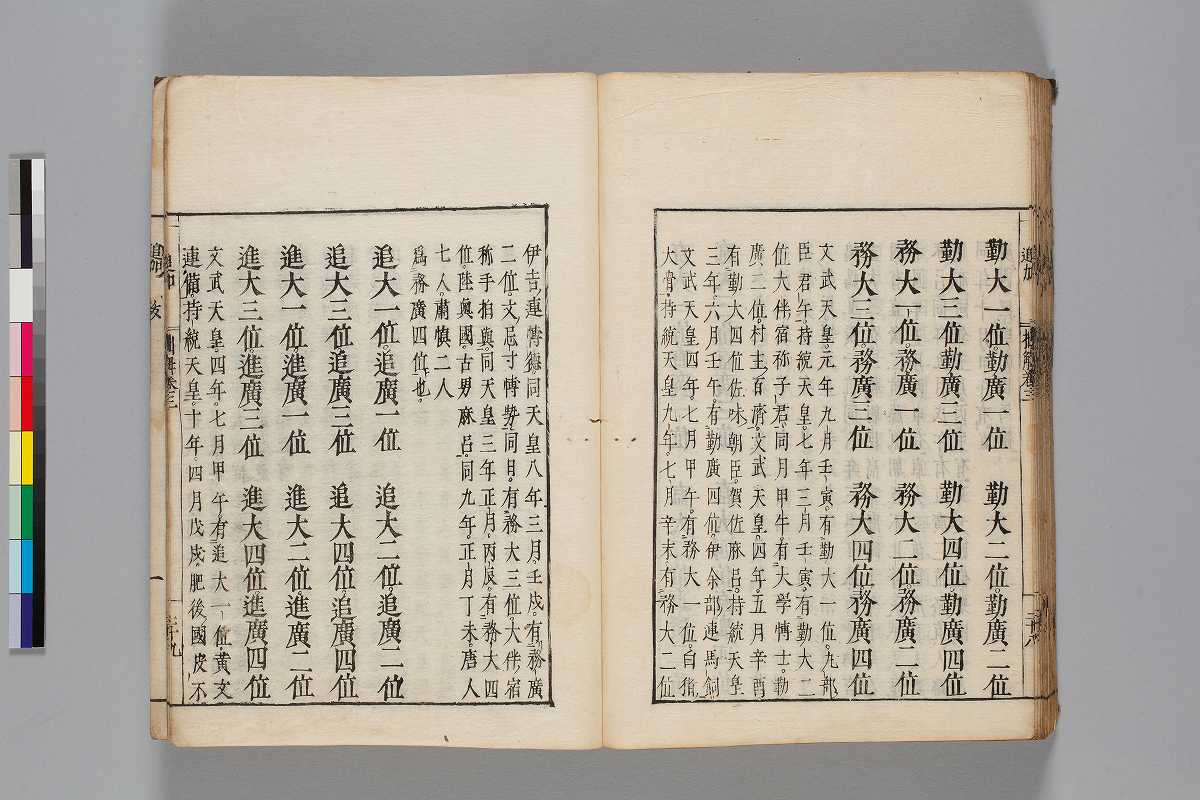 勤大一位。勤廣一位　勤大二位。勤廣二位
勤大三位。勤廣三位　勤大四位。勤廣四位
務大一位。務廣一位　務大二位。務廣二位
務大三位。務廣三位　務大四位。務廣四位
文武天皇。元年九月壬寅。有勤大一位。九部
臣君午。持統天皇。七年三月壬寅。有勤大二
位大伴宿祢子君。同月甲午。有大学博士。勤
廣二位。村主百濟。文武天皇。四年。五月辛酉
有勤大四位佐味朝臣。賀佐麻呂。持統天皇
三年。六月壬午。有勤廣四位。伊余部連馬飼
文武天皇四年。七月甲午。有務大一位。白猪
大骨。持統天皇。九年。七月辛未。有務大二位
伊吉連博德。同天皇八年。三月。壬戌。有務廣
二位。文忌寸博勢。同月。有務大三位。大伴宿
祢手拍與。同天皇三年。正月。丙辰。有務大四
位陸奥國。古男麻呂。同九年。正月丁未。唐人
七人。肅愼二人
爲務廣四位也。
追大一位。追廣一位　追大二位。追廣二位
追大三位。追廣三位　追大四位。追廣四位
進大一位。進廣一位　進大二位。進廣二位
進大三位。進廣三位　進大四位。進廣四位
文武天皇。四年。七月甲午。有追大一位。黄文
連備。持統天皇。十年。四月戊戌。肥後國皮不